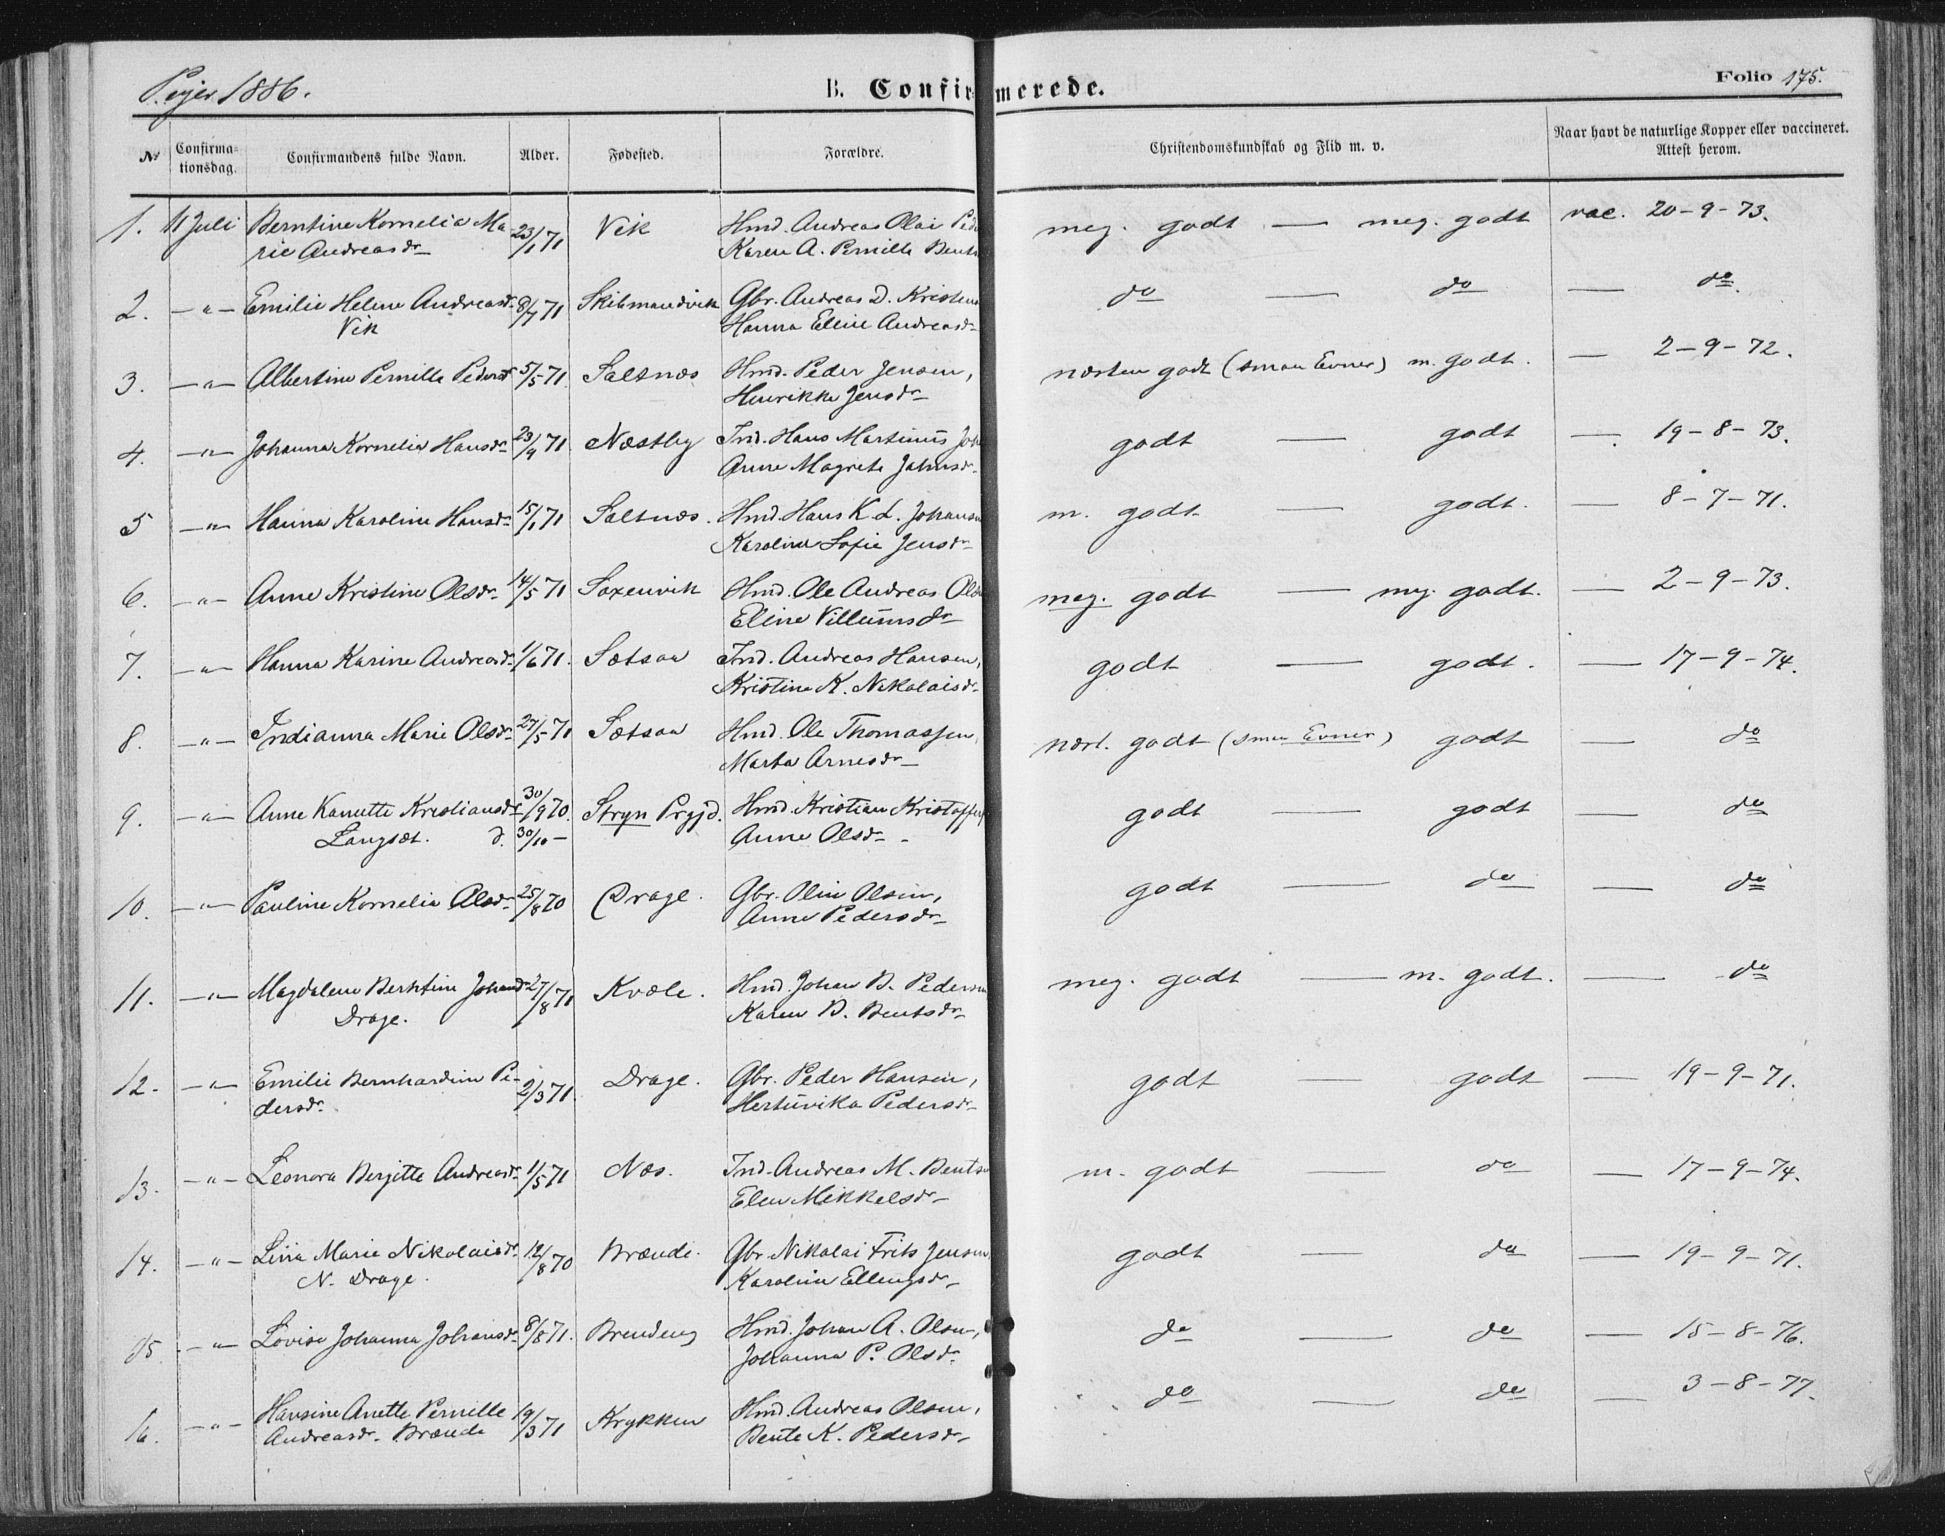 Piger 1886.
B. Confirmerede.
Folio 175.
№ Confirmationsdag. Confirmandens fulde Navn. Alder. Fødested. Forældre. Christendomskundskab og Flid m. v. Naar havt de naturlige Kopper eller vaccineret. Attest herom.
1. 11 Juli Berntine Kornelia Ma- 23/1 71 Vik Hmd. Andreas Olai meg. godt — meg. godt vac. 20-9-73.
rie Andreasdr Karen A. Pernille
2. —"— Emilie Helene Andreasdr 8/7 71 Skibmandvik Gbr. Andreas D. do — do — do.
Vik Hanna Eline Andreasdr
3. —"— Albertine Pernille Pedersdr 5/5 71 Saltnæs Hmd. Peder Jensen, næsten godt (smaa Evner) m. godt. — 2-9-72.
Henrikke Jensdr
4. —"— Johanna Kornelia Hansdr 23/9 71 Næstby Ind. Hans Martinus godt — godt — 19-8-73.
Anne Magrete Jahnsdr
5 —"— Hanna Karoline Hansdr 15/1 71 Saltnæs. Hmd. Hans K. L. Johansen m. godt — godt. — 8-7-71.
Karoline Sofie Jensdr
6. —"— Anne Kristine Olsdr 14/5 71 Saxenvik Hmd. Ole Andreas meg. godt — meg. godt. — 2-9-73.
Eline Villumsdr
7. —"— Hanna Karine Andreasdr 1/6 71. Sætsaa Ind. Andreas Hansen, godt — godt. — 17-9-74.
Kristine K. Nikolaisdr
8. —"— Indianna Marie Olsdr 27/5 71 Sætsaa Hmd. Ole Thomassen, næst. godt (smaa Evner) godt — do
Marta Arnesdr
9. —"— Anne Kanutte Kristiansdr 30/9 70. Stryn Prgjd. Hmd. Kristian godt — godt — do
Langsæt. d. 30/10 — Anne Olsdr
10. —"— Pauline Kornelia Olsdr 25/8 70 Drage. Gbr. Olin Olsen, godt — do — do
Anne Pedersdr
11. —"— Magdalene Berntine Johansdr 27/8 71 Kvæle. Hmd. Johan B. Pedersen meg. godt — m. godt. — do
Drage. Karen B. Bentsdr
12. —"— Emilie Bernhardine Pe- 2/3 71 Drage. Gbr. Peder Hansen, godt — godt — 19-9-71.
dersdr Hertuvika Pedersdr
13. —"— Leonora Bergitte Andreasdr 1/5 71 Næs. Ind. Andreas M. m. godt — do — 17-9-74.
Elen Mikkelsdr
14. —"— Lina Marie Nikolaisdr 12/8 70 Brænde. Gbr. Nikolai Frits Jensen godt — do — 19-9-71.
N. Drage. Karoline Ellingsdr
15. —"— Lovise Johanna Johansdr 8/8 71. Brendeng Hmd. Johan A. Olsen, do — do — 15-8-76.
Johanna P. Olsdr
16. —"— Hansine Anette Pernille 19/3 71 Krykken Hmd. Andreas Olsen, do — do — 3-8-77.
Andreasdr. Brænde Bente K. Pedersdr